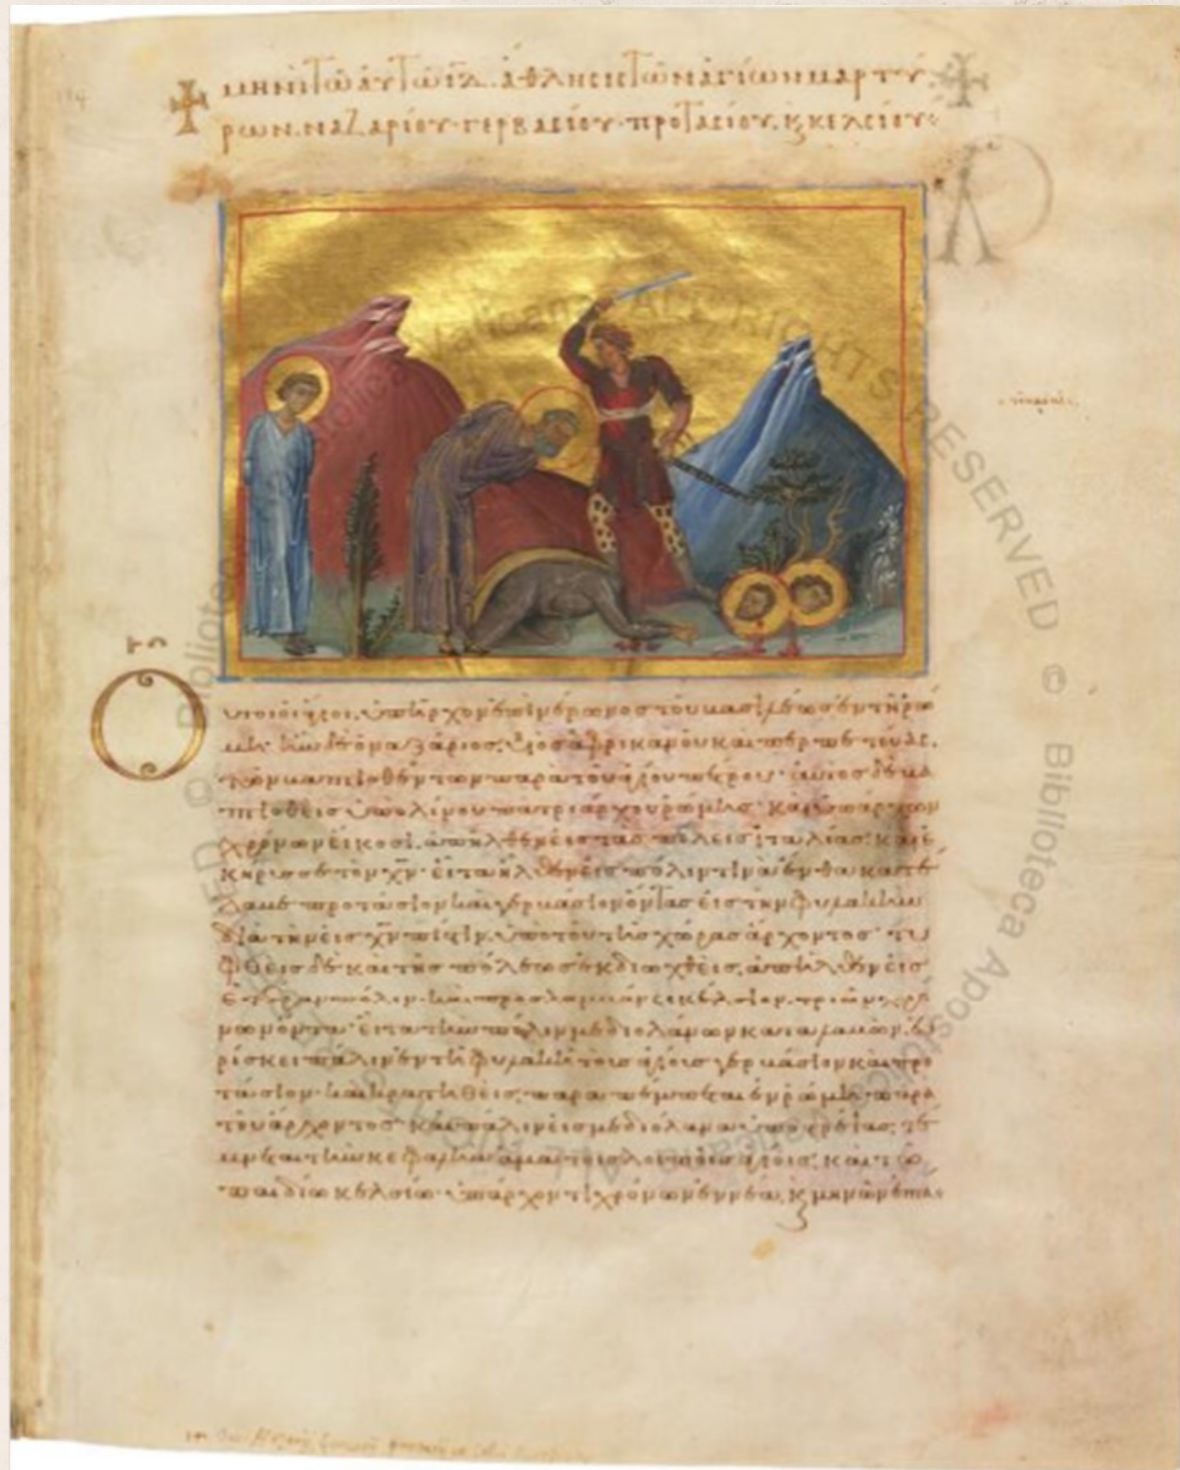 μηνὶ τῶ αὐτῶ ιδ. ἄθλησις τῶν ἁγίων μαρτύ
ρων. ναζαρίου. γερβασίου. προτασίου. ϗ κελσίου
Οὗτοι οἱ ἅγιοι, ὑπῆρχον ἐπὶ νέρωνος τοῦ βασιλέως ἐν τῆ ῥώ
μη. καὶ ὁ μὲν ναζάριος, υἱὸς ἀφρικανοῦ καὶ
τῶν βαπτισθέντων παρὰ τοῦ ἁγίου πέτρου. αὐτὸς δὲ βα
πτισθεὶς ὑπὸ λίνου πατριάρχου ῥώμης. καὶ ὑπάρχων
χρόνων εἴκοσι, ἀπῆλθεν εἰς τὰς πόλεις ἰταλίας, καὶ ἐ
κήρυσσε τὸν χν. εἶτα ἦλθεν εἰς πόλιν τινὰ ἔνθα κατέ
λαβε προτάσιον καὶ γερβάσιον ὄντας εἰς τὴν φυλακὴν
διὰ τὴν εἰς χν πίστιν, ὑπὸ τοῦ τῆς χώρας ἄρχοντος. τυ
φθεὶς δὲ καὶ τῆς πόλεως ἐκδιωχθεὶς, ἀπῆλθεν εἰς
ἑτέραν πόλιν. καὶ προσλαμβάνει κέλσιον, τριῶν χρό
νων ὄντα. εἶτα τὴν πόλιν μεδιολάνων καταλαβὼν, εὑ
ρίσκει πάλιν ἐν τῆ φυλακῆ τοὺς ἁγίους γερβάσιον καὶ προ
τάσιον. καὶ κρατηθεὶς, παραπέμπεται ἐν ῥώμη παρὰ
τοῦ ἄρχοντος. καὶ πάλιν εἰς μεδιόλανα ὑποστρέψας, τέ
μνεται τὴν κεφαλὴν ἅμα τοῖς λοιποῖς ἁγίοις, καὶ τῶ
παιδίω κελσίω ὑπάρχοντι χρόνων ἐννέα, ϗ μηνῶν
ALL RIGHTS RESERVED © Biblioteca Apostolica Vaticana